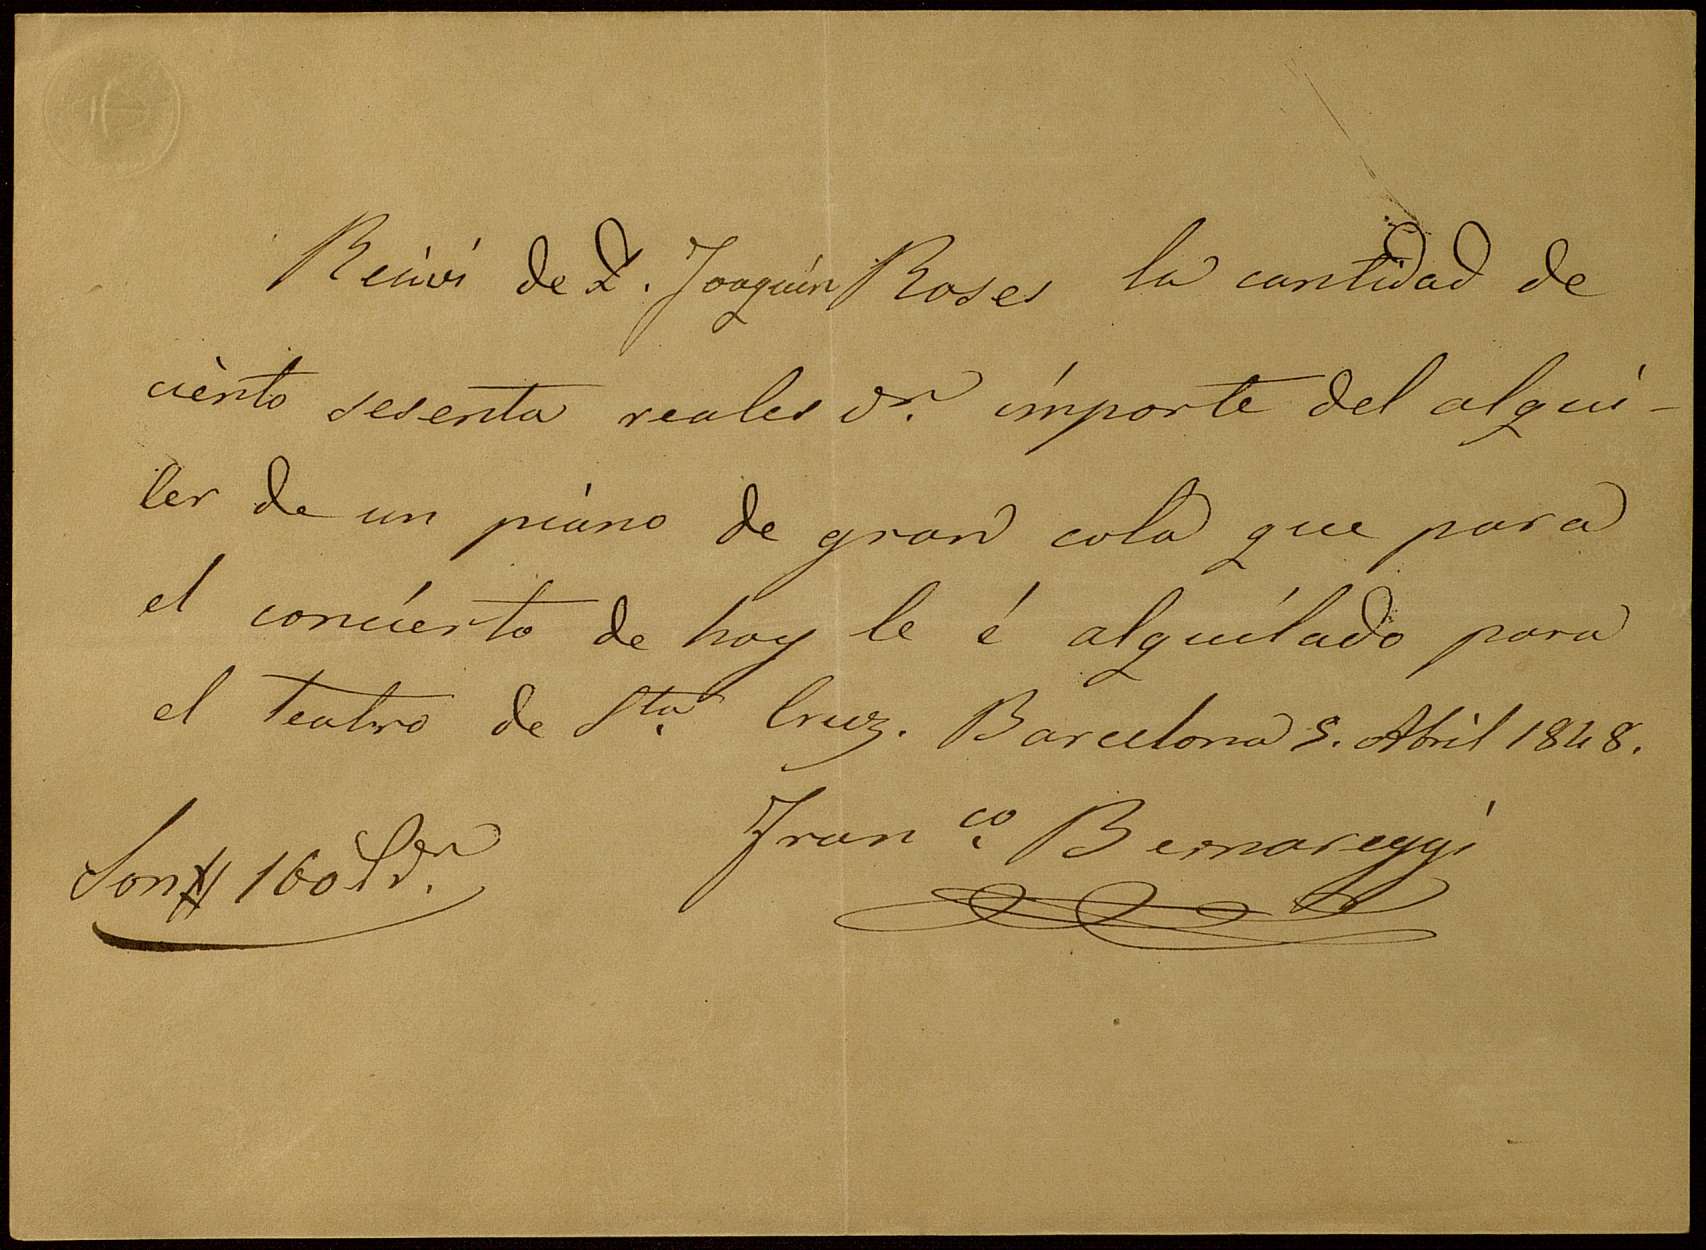 Recivi de D. Joaquin Roses la cantidad de
ciento sesenta reales vn. importe del alqui-
ler de un piano de gran cola que para
el concierto de hoy le é alquilado para
el Teatro de Sta. Cruz. Barcelona 8. Abril 1848.
Franco. Bernareggi
Son 160